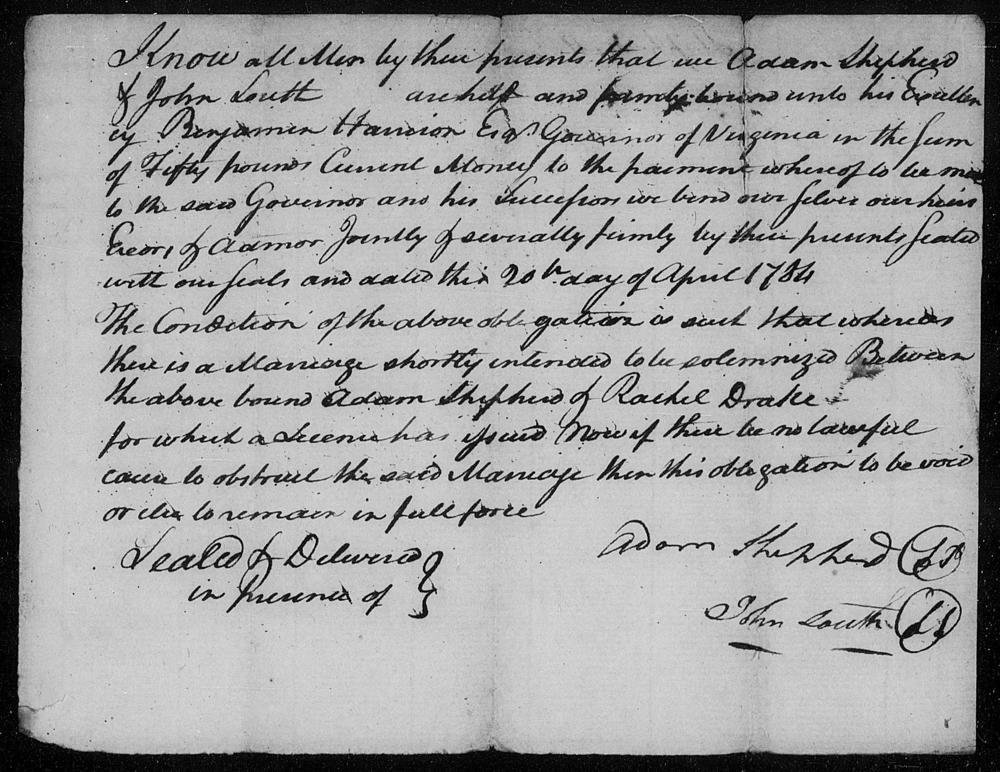 Know all Men by these presents that we Adam Shepherd
& John South are held and firmly bound unto his Excellen
cy Benjamin Harrison Esqr. Governor of Virginia in the Sum
of Fifty pounds Current Money to the paiment whereof to be made
to the said Governor and his Successors we bend our Selves our heirs
Exors & Admor Jointly & severally firmly by these presents Sealed
with our Seals and dated this 20th day of April 1784
The Condition of the above oblegation is such that whereas
there is a Marriage shortly intended to be solemnized Between
the above bound Adam Shepherd & Rachel Drake
for which a Licence has issued Now if there be no lawful
cause to obstruct the said Marriage then this oblegation to be void
or else to remain in full force
Sealed & Delivered
in presence of
Adam Shepherd LS
John South LS